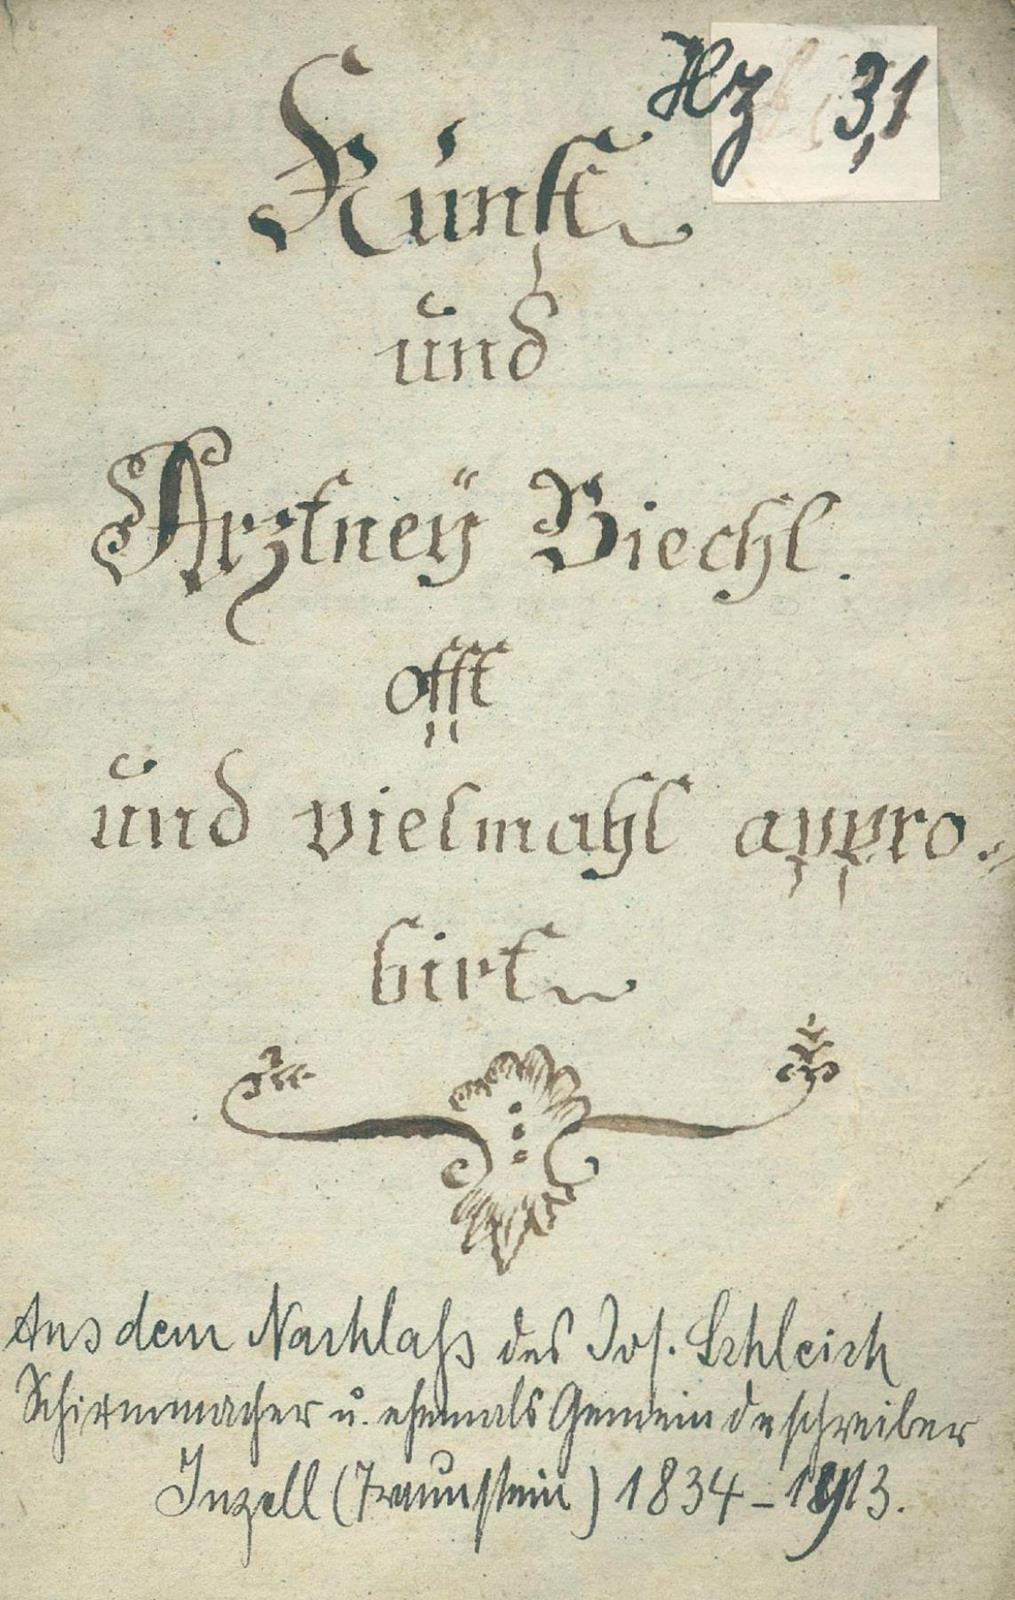 Hz 3,1
Kunst
und
Arztneÿ Biechl.
offt
und vielmahl appro-
birt
Aus dem Nachlaß des Jos. Schleich
Schirmmacher u. ehemals Gemeindeschreiber
Inzell (Traunstein) 1834-1913.